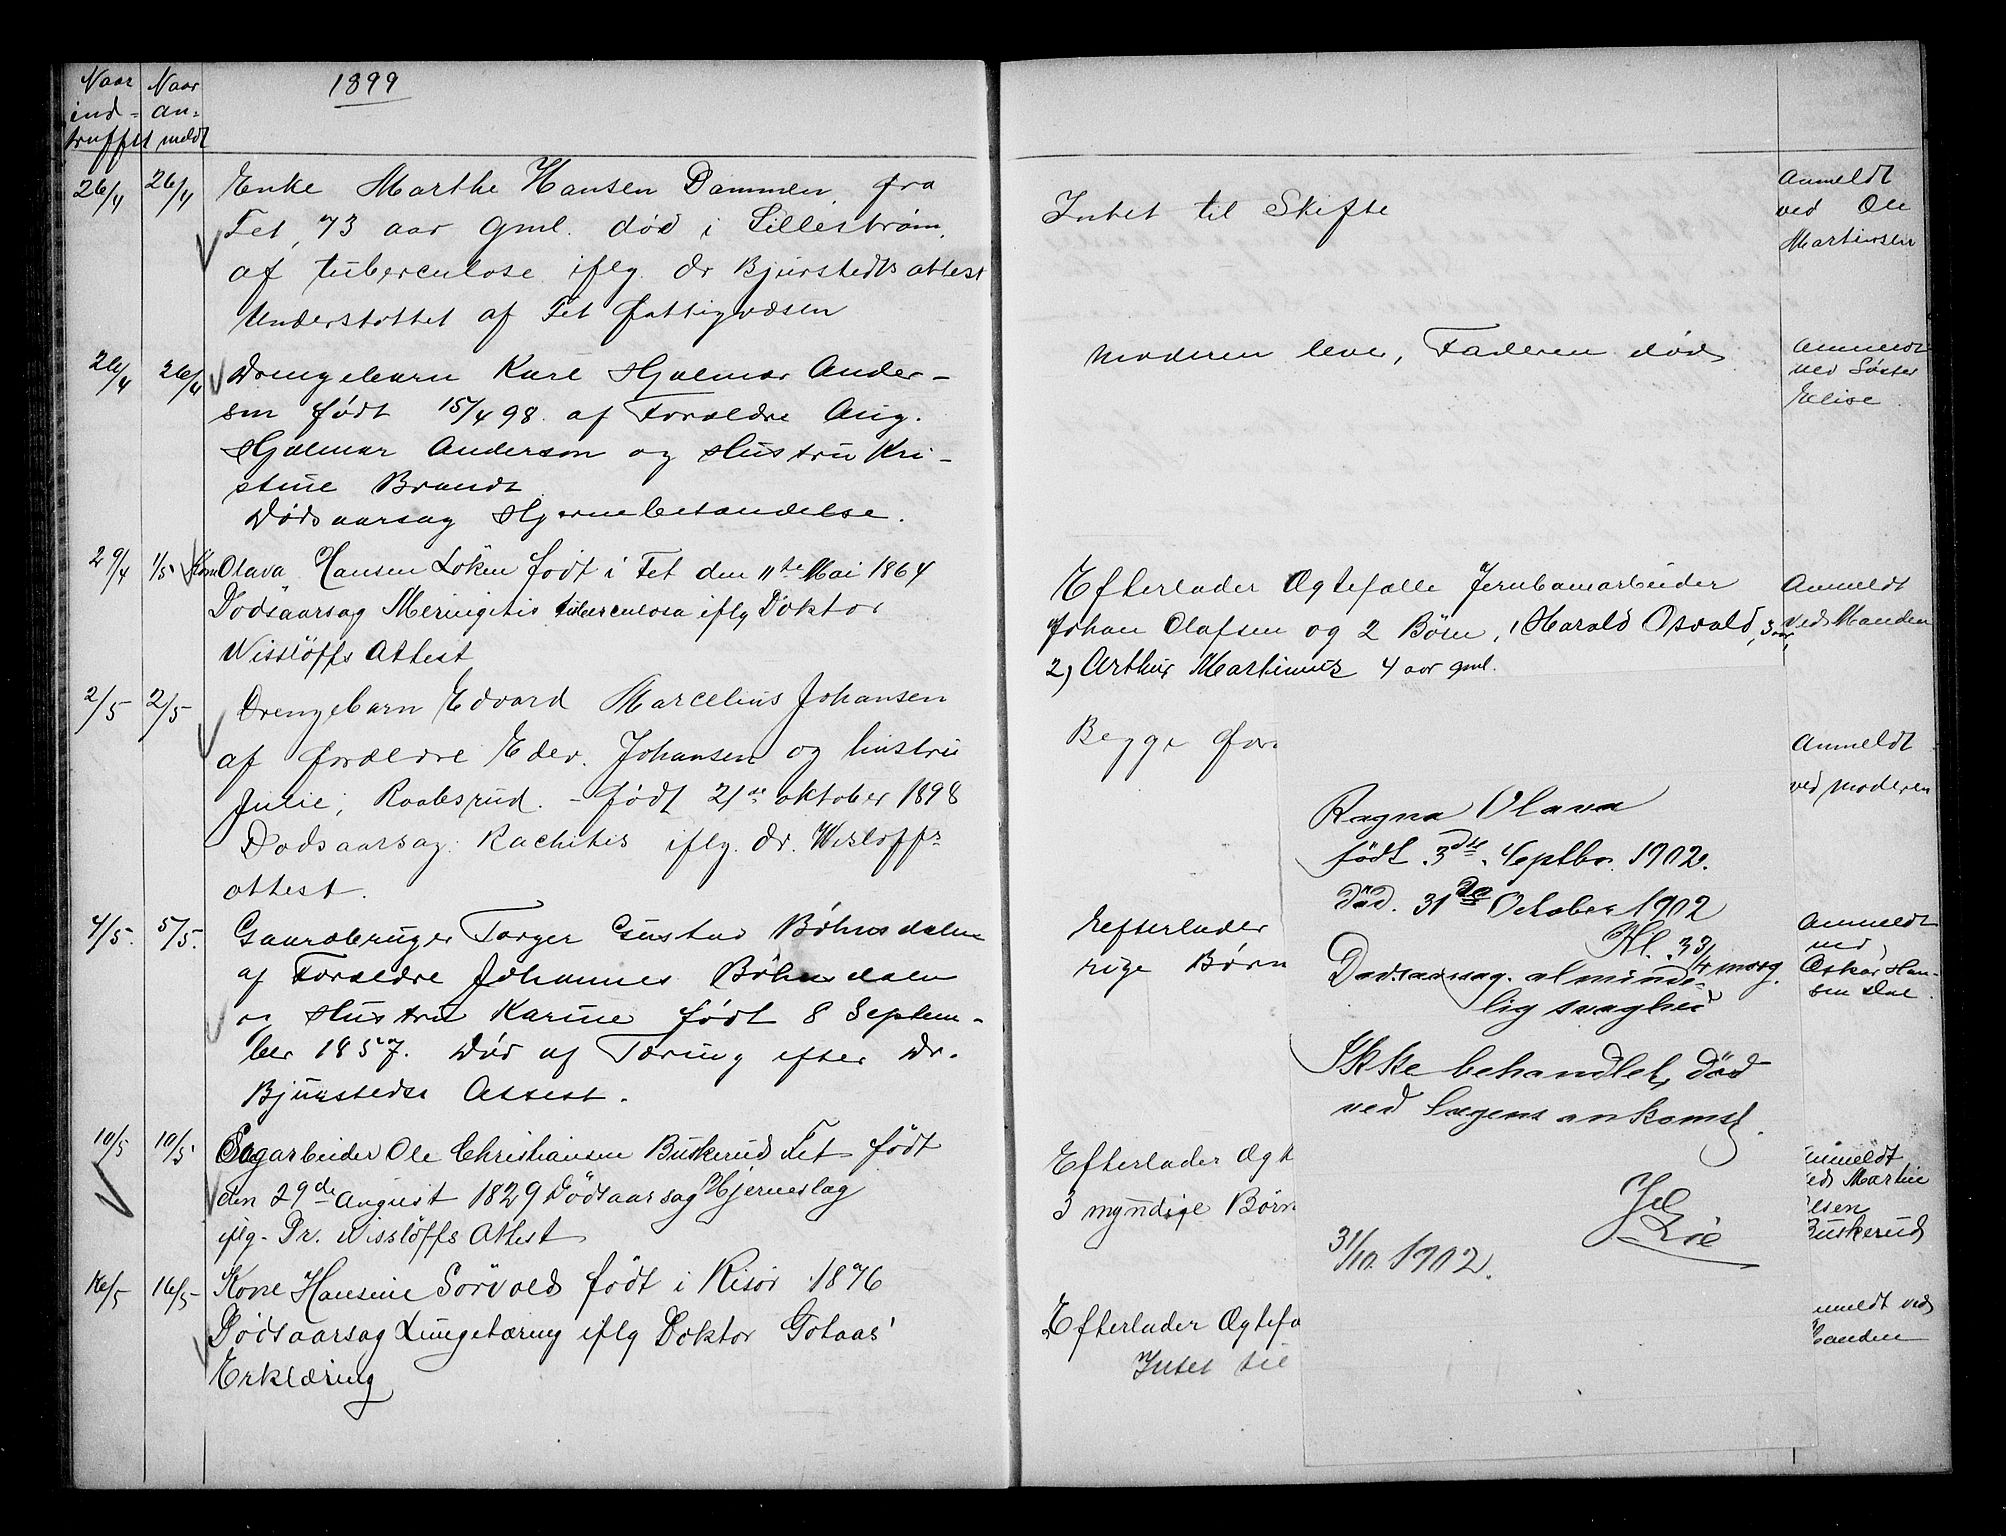 Naar Naar
ind- an-
truffet meldt
1899
26/4 26/4 Enke Marthe Hansen Dammen, fra
Fet, 73 aar gml. død i Lillestrøm,
af tuberculose iflg. dr Bjurstedts attest
Understøttet af Fet fattigvæsen
26/4 26/4 Drengebarn Karl Hjalmar Ander-
sen født 15/4 98. af Forældre Aug.
Hjalmar Anderson og Hustru Kri-
stine Brandt
Dødsaarsag Hjernebetændelse.
29/4 1/5 Kone Olava Hansen Løken født i Fet den 11te Mai 1864
Dødsaarsag Meningitis tuberculosa iflg Doktor
Wisslöffs Attest
2/5 2/5 Drengebarn Edvard Marcelius Johansen
af forældre Edv. Johansen og hustru
Julie, Raabsrud. - født 21de oktober 1898
Dødsaarsag: Rachitis iflg. dr. Wisloffs
attest.
4/5. 5/5. Gaardbruger Torger Gustav Bøhnsdalen
af Forældre Johannes Bøhnsdalen
og Hustru Karine født 8 Septem-
ber 1857. Død af Tæring efter Dr.
Bjurstedts Attest.
10/5 10/5 Sagarbeider Ole Christiansen Buskerud Fet født
den 29de August 1829 Dødsaarsag Hjerneslag
iflg. Dr. Wisslöffs Attest
16/5 16/5 Kone Hansine Sörvold født i Risør 1876
Dødsaarsag Lungetæring iflg Doktor Gotaas'
Erklæring
Intet til Skifte
Anmeldt
ved Ole
Martinsen
Moderen lever, Faderen død
Anmeldt
ved Søster
Elise
Efterlader Ægtefælle Jernbanearbeider
Johan Olafsen og 2 Börn, 1 Harald Osvald, 3 aar,
2) Arthur Martinius 4 aar gml.
Anmeldt
ved Manden
Begge for
Anmeldt
ved moderen
Efterlader
rige Børn
Anmeldt
ved
Oskar Han-
sen Dal
Efterlader Ægt
3 myndige Børn
nmeldt
ed Martin
lsen
Buskerud
Efterlader Ægtefæ
Intet til
nmeldt ved
Manden
Ragna Olava
født. 3die. Septbr. 1902.
död. 31da October 1902
Kl. 3 3/4 morg.
Dødsaarsag. alminde-
lig svaghed
Ikke behandlet, död
ved Lægens ankomst.
31/10. 1902.